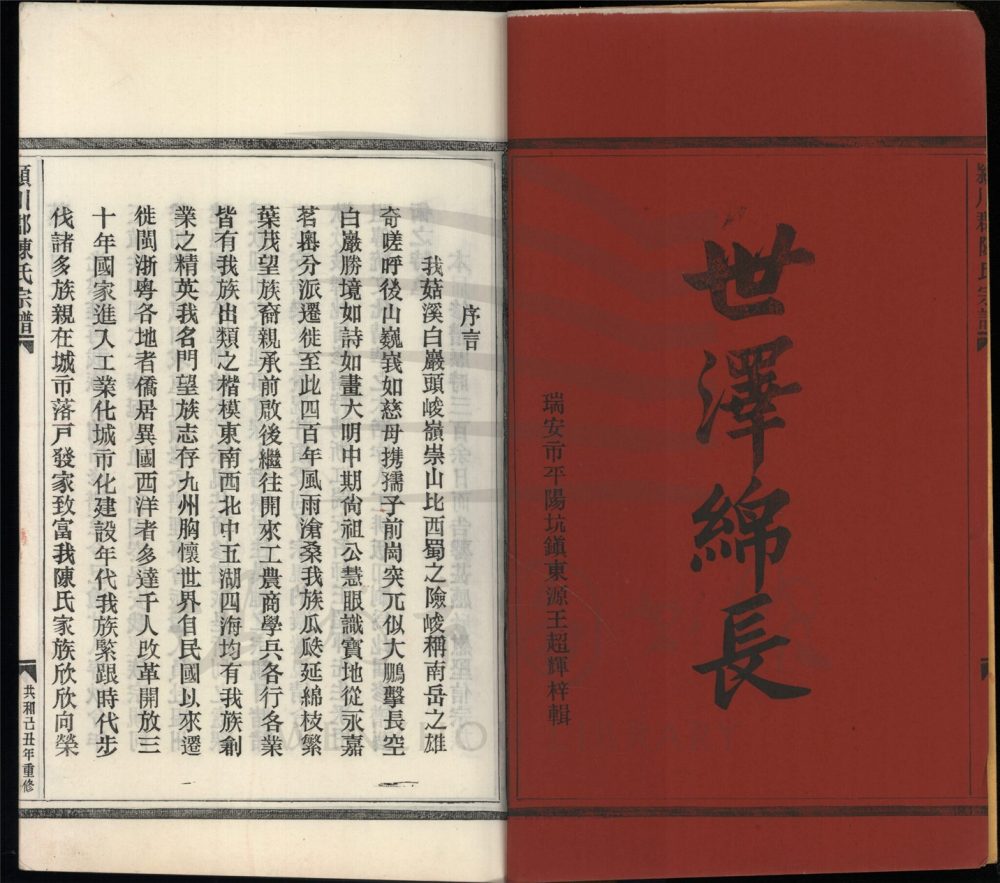 潁川郡陳氏宗譜
世澤綿長
瑞安市平陽坑鎮東源王超輝梓輯
序言
我菇溪白巖頭峻嶺崇山比西蜀之險峻稱南岳之雄
奇嗟呼後山巍峩如慈母携孺子前崗突兀似大鵬擊長空
白巖勝境如詩如畫大明中期尙祖公慧眼識寶地從永嘉
茗嶴分派遷徙至此四百年風雨滄桑我族瓜瓞延綿枝繁
葉茂望族裔親承前啟後繼往開來工農商學兵各行各業
皆有我族出類之楷模東南西北中五湖四海均有我族創
業之精英我名門望族志存九州胸懷世界自民國以來遷
徙閩浙粵各地者僑居異國西洋者多達千人改革開放三
十年國家進入工業化城市化建設年代我族緊跟時代步
伐諸多族親在城市落戶發家致富我陳氏家族欣欣向榮
一
潁川郡陳氏宗譜
共和己丑年重修